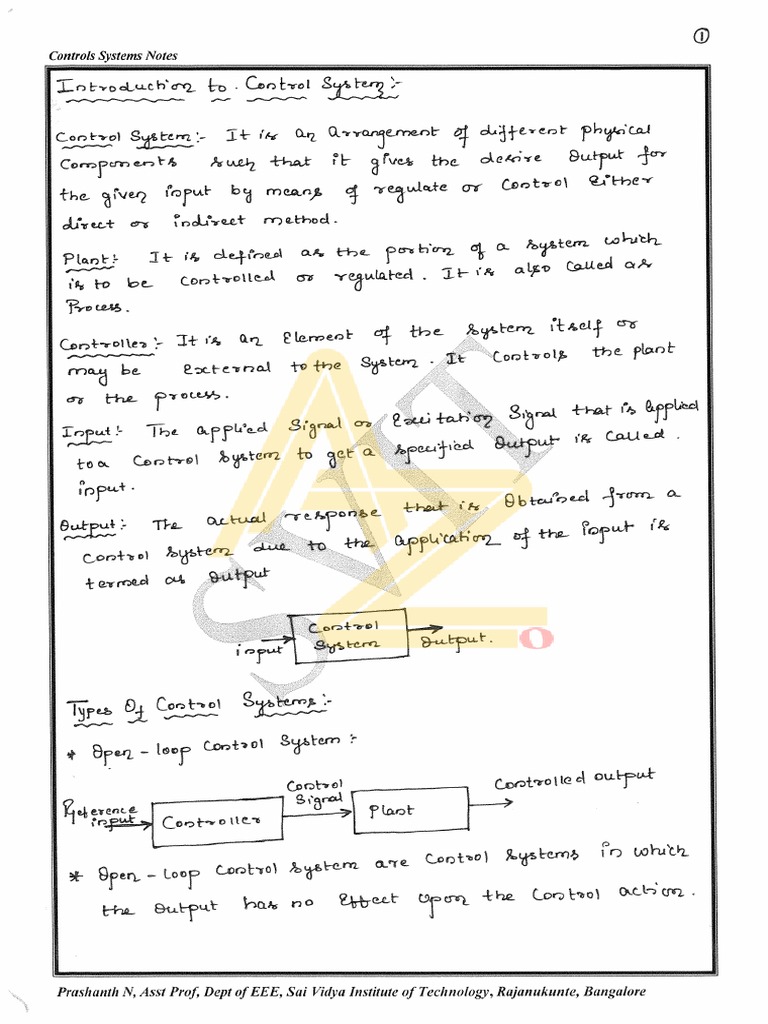 ①
Controls Systems Notes
Introduction to Control System:-
Control System:- It is an Arrangement of different physical
Components such that it gives the desire Output for
the given input by means of regulate or Control Either
direct or indirect method.
Plant:- It is defined as the portion of a System which
is to be Controlled or regulated. It is also Called as
Process.
Controller:- It is an Element of the System itself or
may be External to the System. It Controls the plant
or the process.
Input:- The applied Signal or Excitation Signal that is applied
to a Control System to get a specified Output is Called.
input.
Output:- The actual response that is Obtained from a
Control System due to the application of the input is
termed as Output
input
Control
System
Output.
Types Of Control Systems:-
* Open-loop Control System:-
Reference
input
Controller
Control
Signal
Plant
Controlled output
* Open-Loop Control System are Control Systems in which
the Output has no Effect upon the Control action.
SVIT
Prashanth N, Asst Prof, Dept of EEE, Sai Vidya Institute of Technology, Rajanukunte, Bangalore